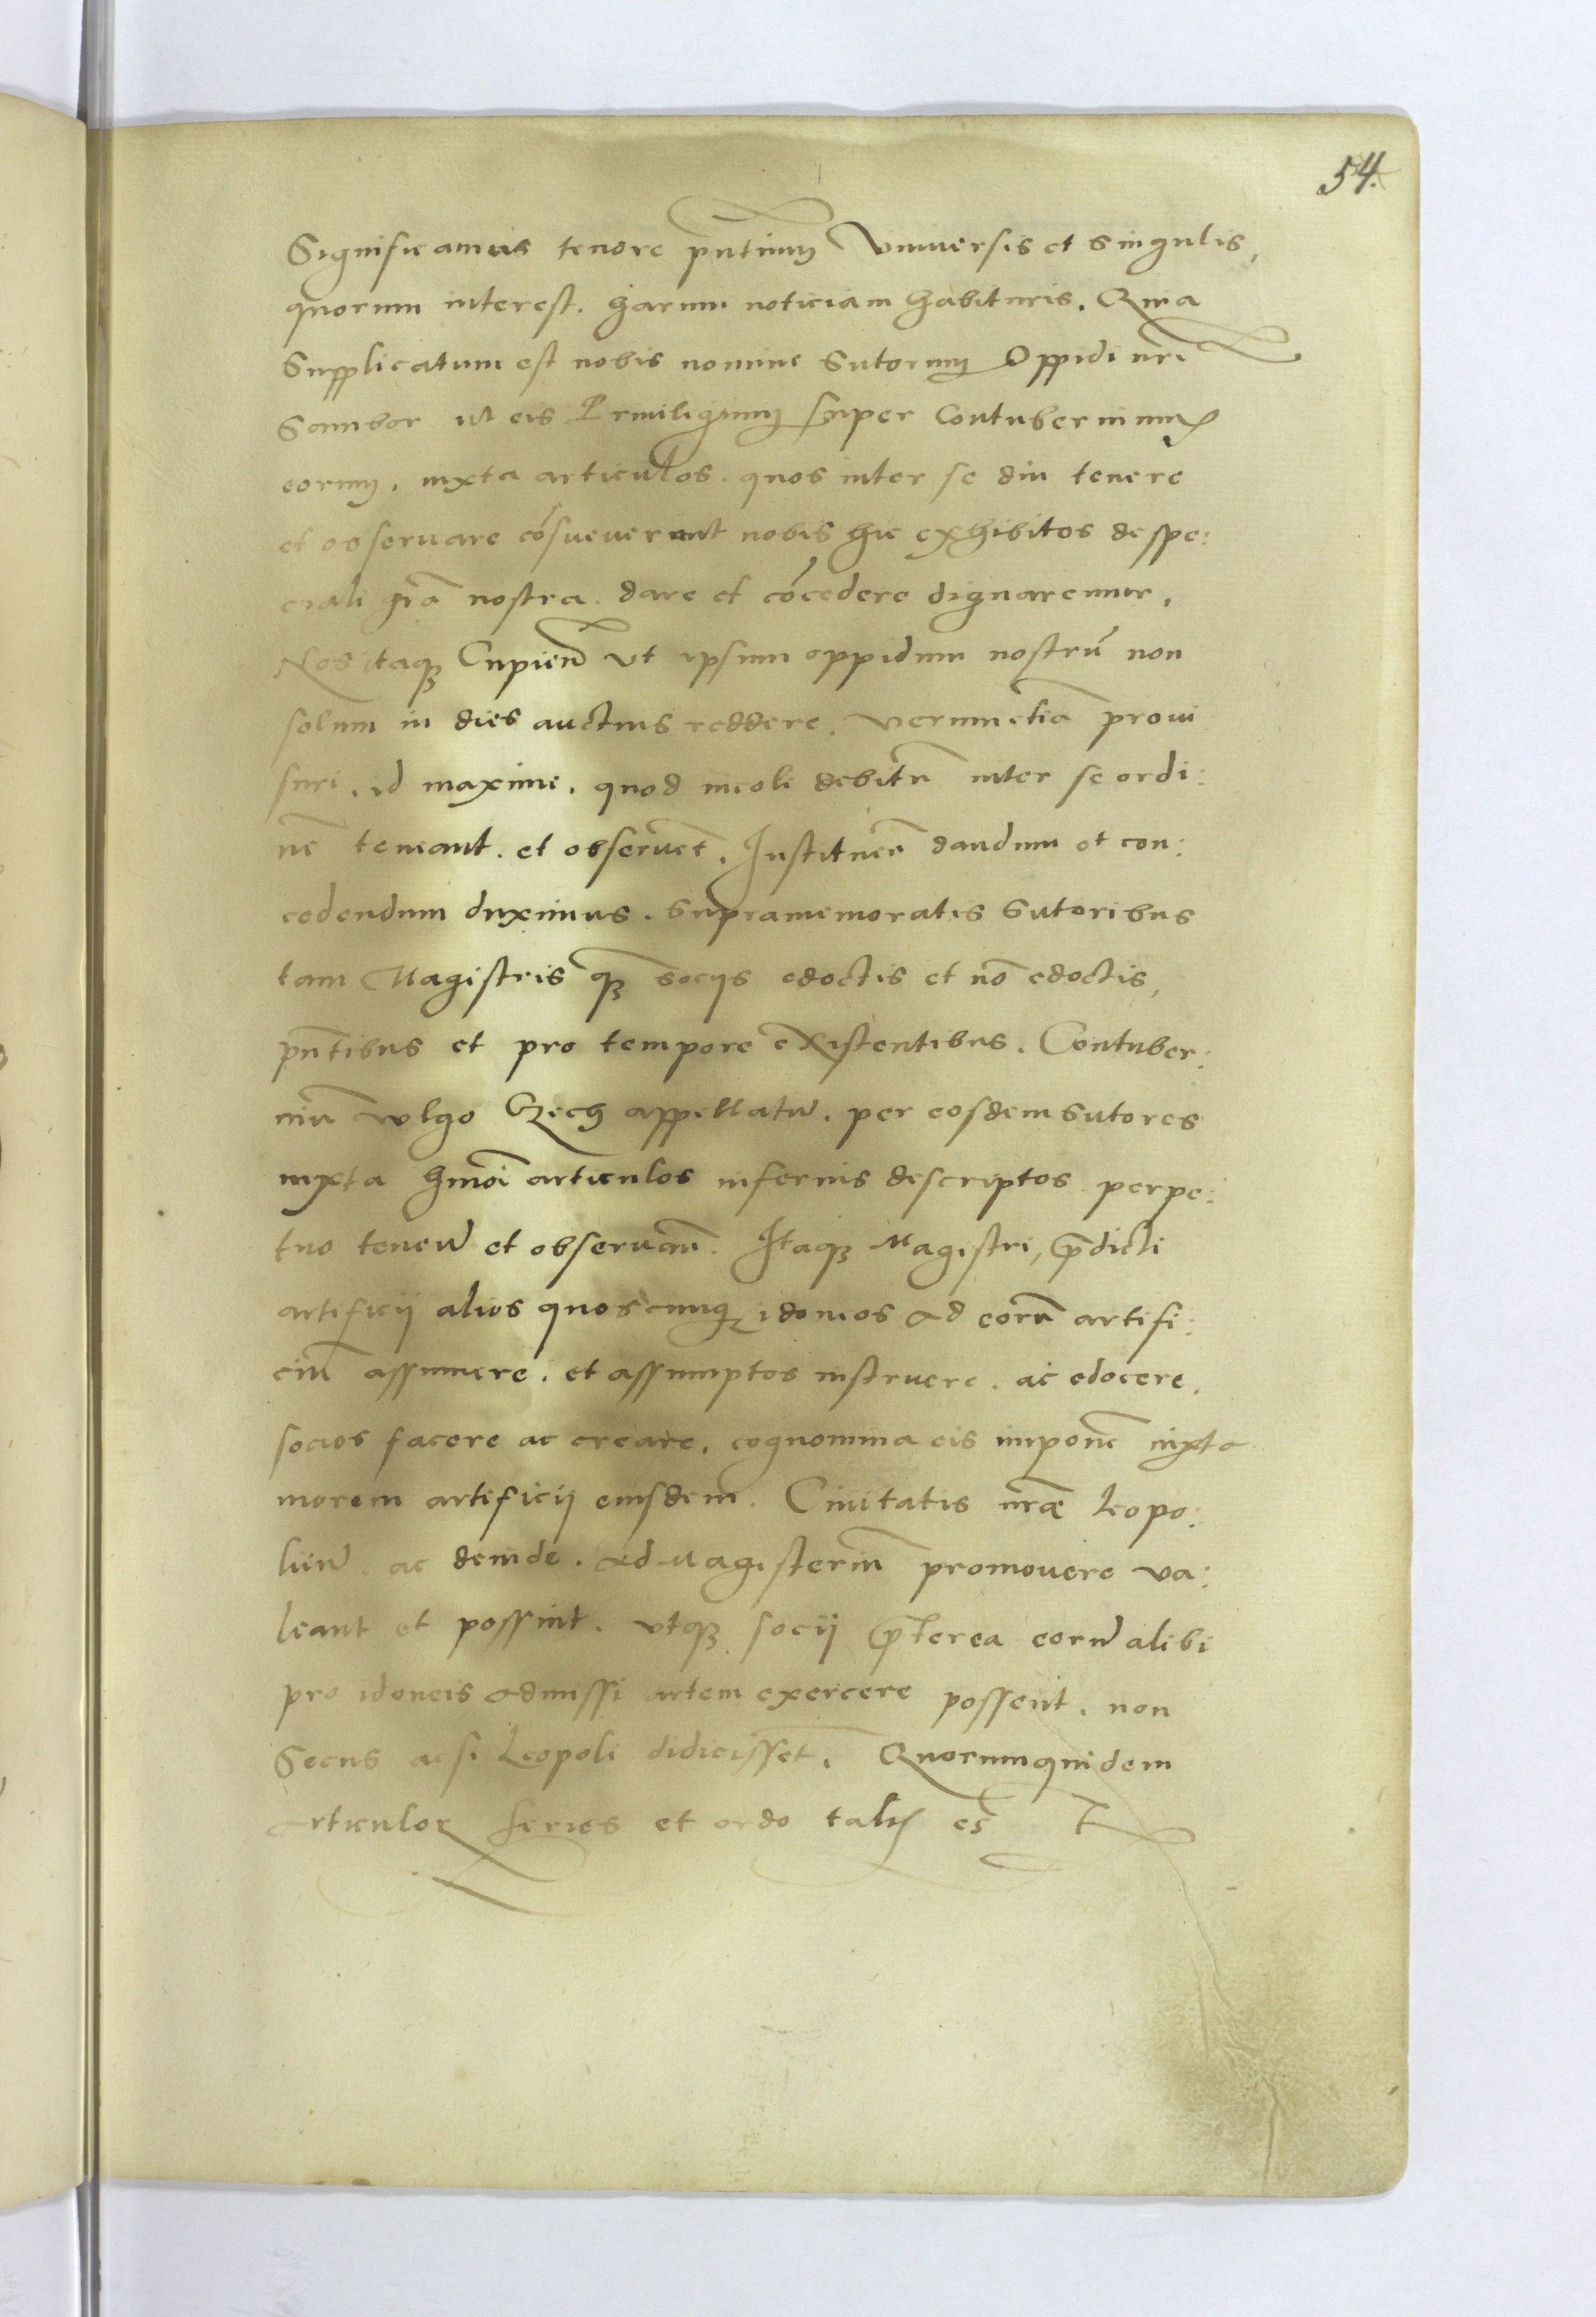 54.
Significamus tenore pñtium Vniuersis et singulis,
quorum interest. harum noticiam habituris. Quia
Supplicatum est nobis nomine Sutorum Oppidi nri
Sambor ut eis Priuiligium super Contubernium
eorum. iuxta articulos. quos inter se diu tenere
et obseruare cõsueuerunt nobis hic exhibitos de spe:
ciali gr̃a nostra. dare et cõcedere dignaremur,
Nos itaq3 Cupieñ vt ipsum oppidum nostrũ non
solum in dies auctius reddere. verumetiã proui
suri. id maxime. quod incole debitũ inter se ordi:
nẽ teneant. et obseruẽt. Instituere dandum et con:
cedendum duximus. Supramemoratis Sutoribus
tam Magistris q̃3 socijs edoctis et nõ edoctis,
pñtibus et pro tempore existentibus. Contuber:
niũ vulgo Czech appellatũ. per eosdem Sutores
iuxta hmõi articulos inferius descriptos perpe:
tuo teneñ et obseruañ. Itaq3 Magistri, p̃dicti
artificij alios quoscunq3 idoneos ad eorũ artifi:
ciũ assumere. et assumptos instruere. ac edocere.
socios facere ac creare. cognomina eis imponẽ iuxta
morem artificij eiusdem. Ciuitatis nr̃æ Leopo:
lieñ. ac deinde. ad Magisteriũ promouere va:
leant et possint. vtq3 socij p̃terea eorũ alibi
pro idoneis admissi artem exercere possent. non
Secus ac si Leopoli didicissẽt. Quorumquidem
articulor̃ series et ordo talis es̃t